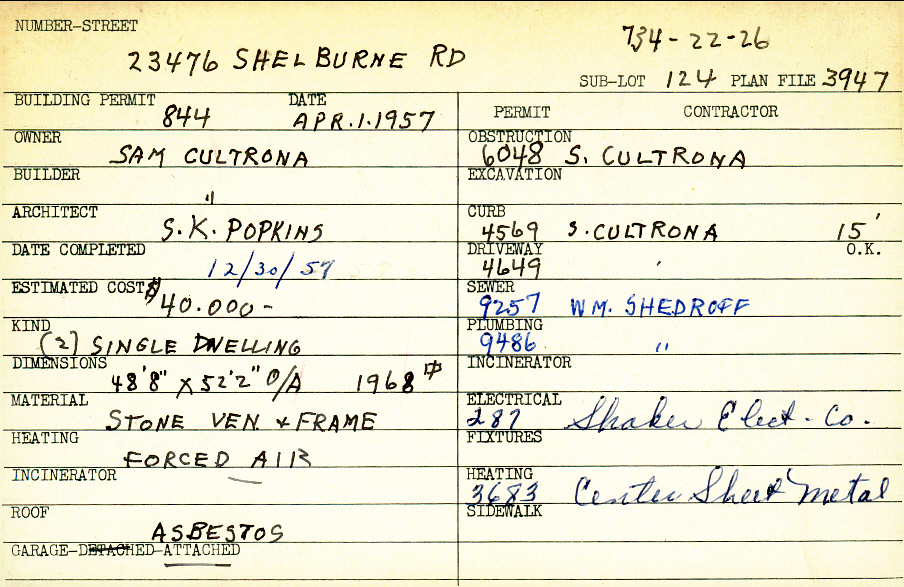 NUMBER-STREET
23476 SHELBURNE RD
734-22-26
SUB-LOT 124 PLAN FILE 3947
BUILDING PERMIT 844 DATE APR.1.1957
OWNER SAM CULTRONA
BUILDER "
ARCHITECT S.K. POPKINS
DATE COMPLETED 12/30/57
ESTIMATED COST $40.000-
KIND (2) SINGLE DWELLING
DIMENSIONS 48'8" x 52'2" O/A 1968 #
MATERIAL STONE VEN. & FRAME
HEATING FORCED AIR
INCINERATOR
ROOF ASBESTOS
GARAGE-DETACHED-ATTACHED
PERMIT CONTRACTOR
OBSTRUCTION 6048 S. CULTRONA
EXCAVATION
CURB 4569 S. CULTRONA 15'
DRIVEWAY 4649 ' O.K.
SEWER 9257 WM. SHEDROFF
PLUMBING 9486 "
INCINERATOR
ELECTRICAL 287 Shaker Elect. Co.
FIXTURES
HEATING 3683 Center Sheet Metal
SIDEWALK